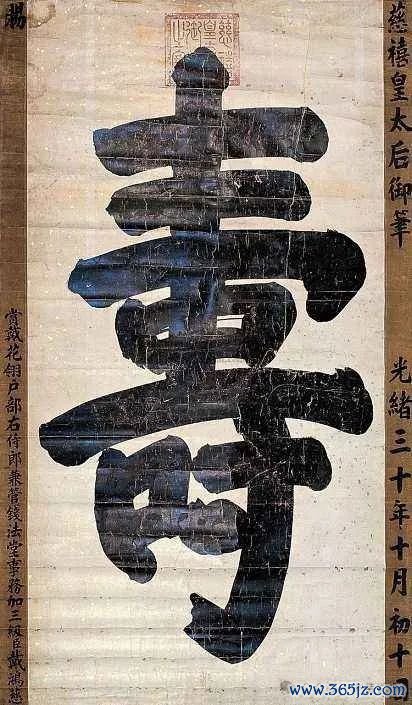 慈禧皇太后御筆
光緒三十年十月初十日
壽
賜
賞戴花翎戶部右侍郎兼管錢法堂事務加三級臣戴鴻慈
www.365jz.com